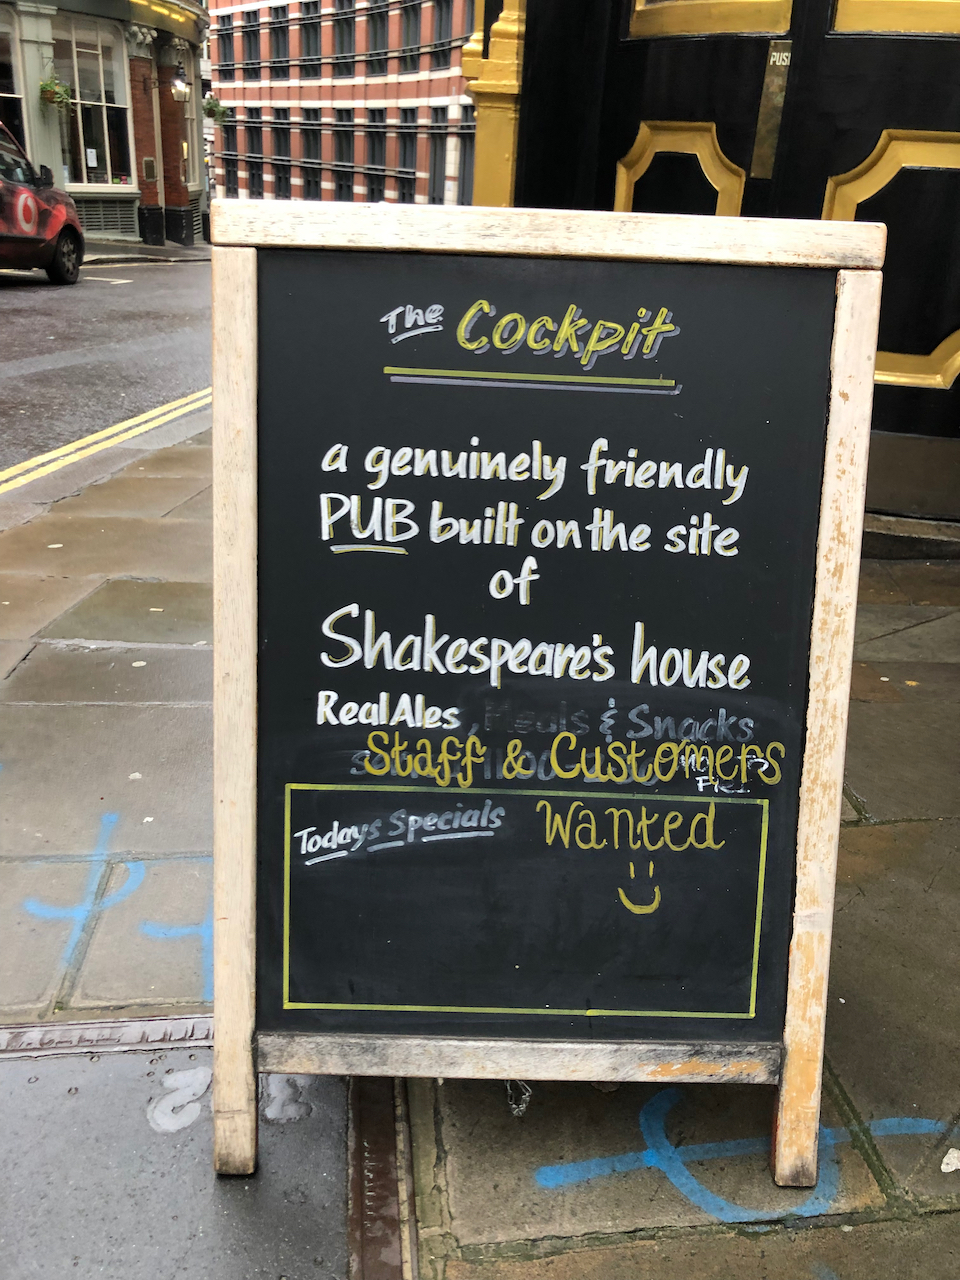 PUSH
The Cockpit
a genuinely friendly
PUB built on the site
of
Shakespeare's house
Real Ales, Meals & Snacks
Staff & Customers
Todays Specials
Wanted